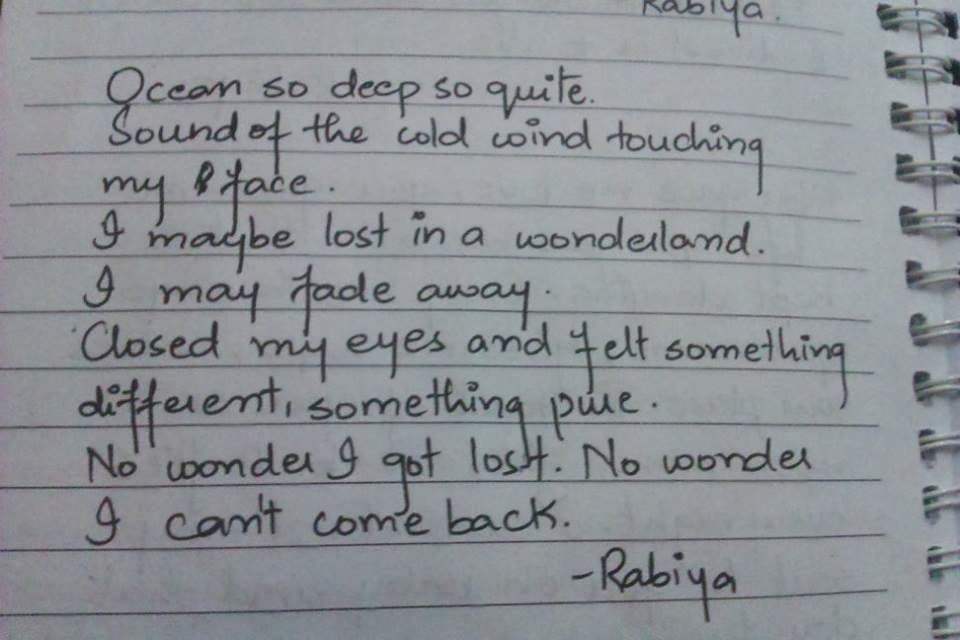 Rabiya.
Ocean so deep so quite.
Sound of the cold wind touching
my face.
I maybe lost in a wonderland.
I may fade away.
Closed my eyes and felt something
different, something pure.
No wonder I got lost. No wonder
I can't come back.
-Rabiya